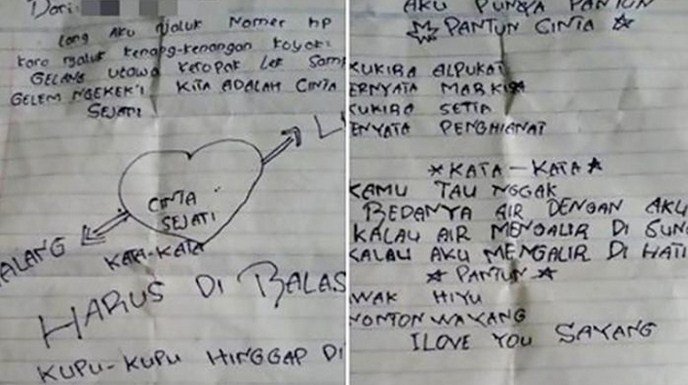 Dari:
Lang AKU njaluk Nomer HP
karo njaluk kenang-kenangan koyok:
GELANG utawa ketopak Lek Samp
GELEM NGEKEK'I KITA ADALAH CINTA
SEJATI
CINTA
SEJATI
ALANG
KATA-KATA
HARUS DI BALAS
KUPU-KUPU HINGGAP DI
AKU PUNYA PANTUN
PANTUN CINTA
KUKIRA ALPUKAT
ERNYATA MARKISA
KUKIRA SETIA
ENYATA PENGHIANAT
KATA-KATA
KAMU TAU NGGAK
BEDANYA AIR DENGAN AKU
KALAU AIR MENGALIR DI SUN
KALAU AKU MENGALIR DI HATI
PANTUN
WAK HIYU
NONTON WAYANG
I LOVE YOU SAYANG